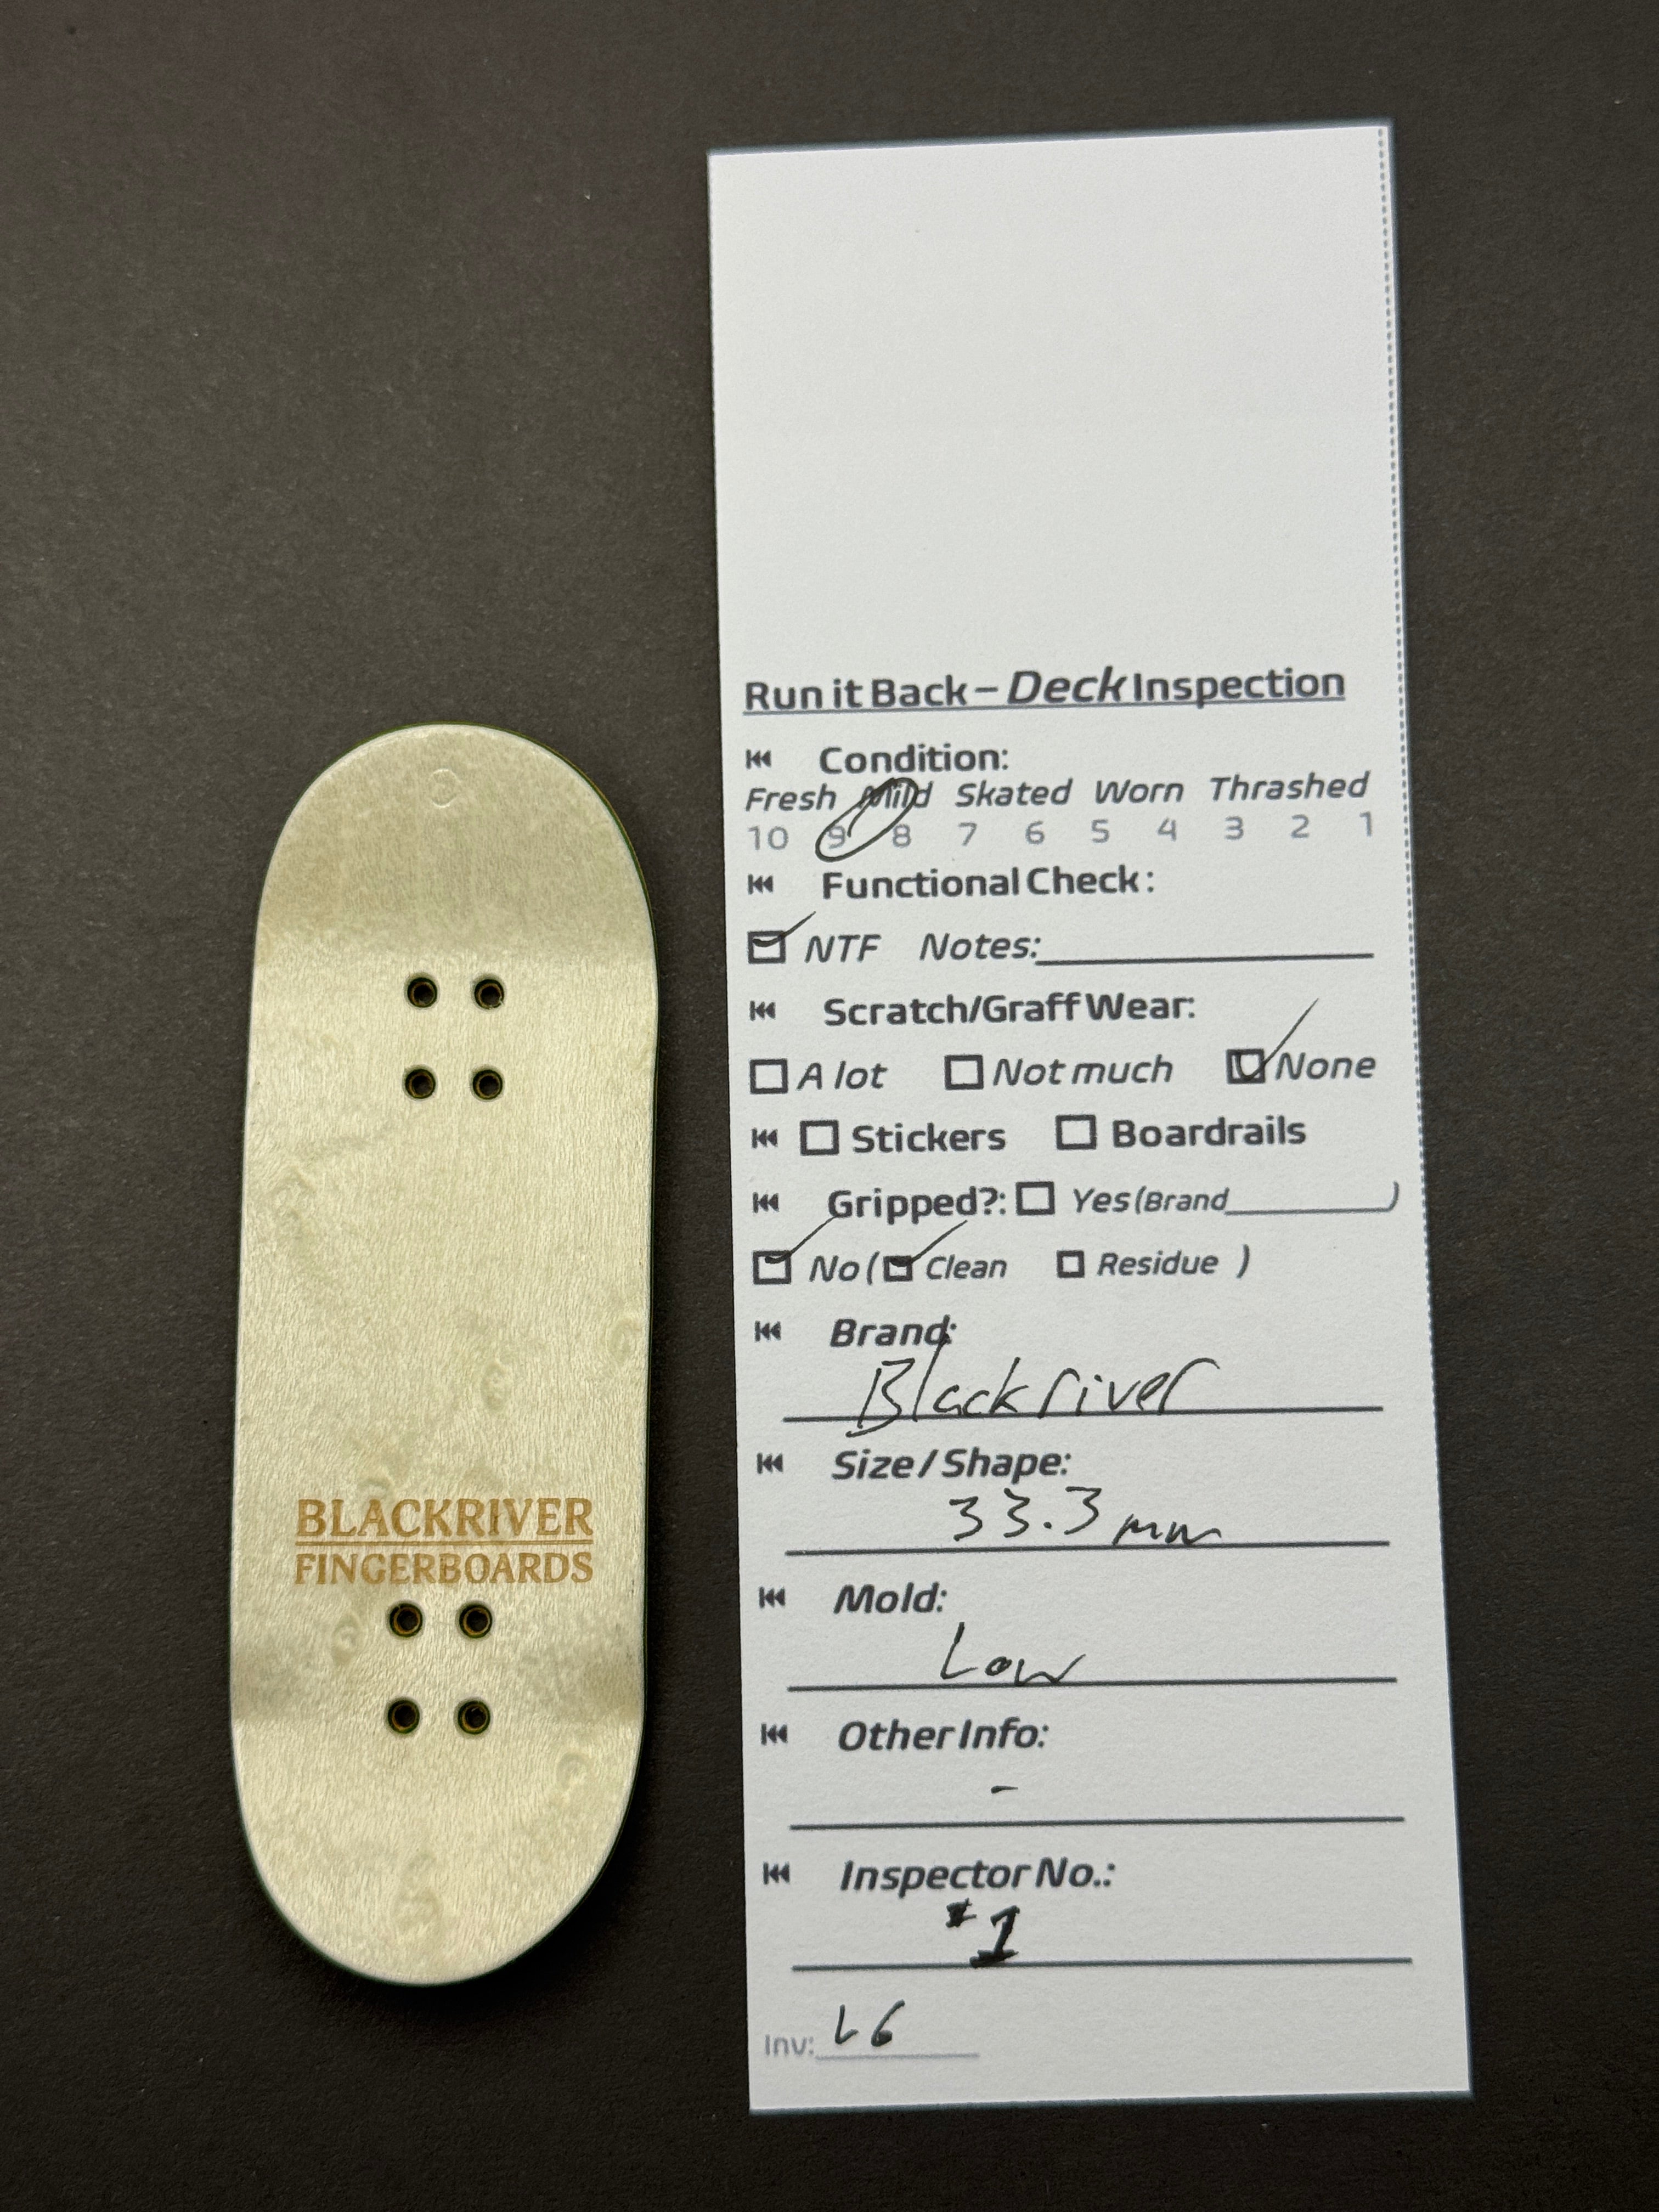 BLACKRIVER
FINGERBOARDS
Run it Back – Deck Inspection
Condition:
Fresh Mild Skated Worn Thrashed
10 9 8 7 6 5 4 3 2 1
Functional Check:
NTF Notes:
Scratch/Graff Wear:
A lot Not much None
Stickers Boardrails
Gripped?: Yes (Brand )
No ( Clean Residue )
Brand:
Blackriver
Size / Shape:
33.3 mm
Mold:
Low
Other Info:
-
Inspector No.:
#1
Inv: